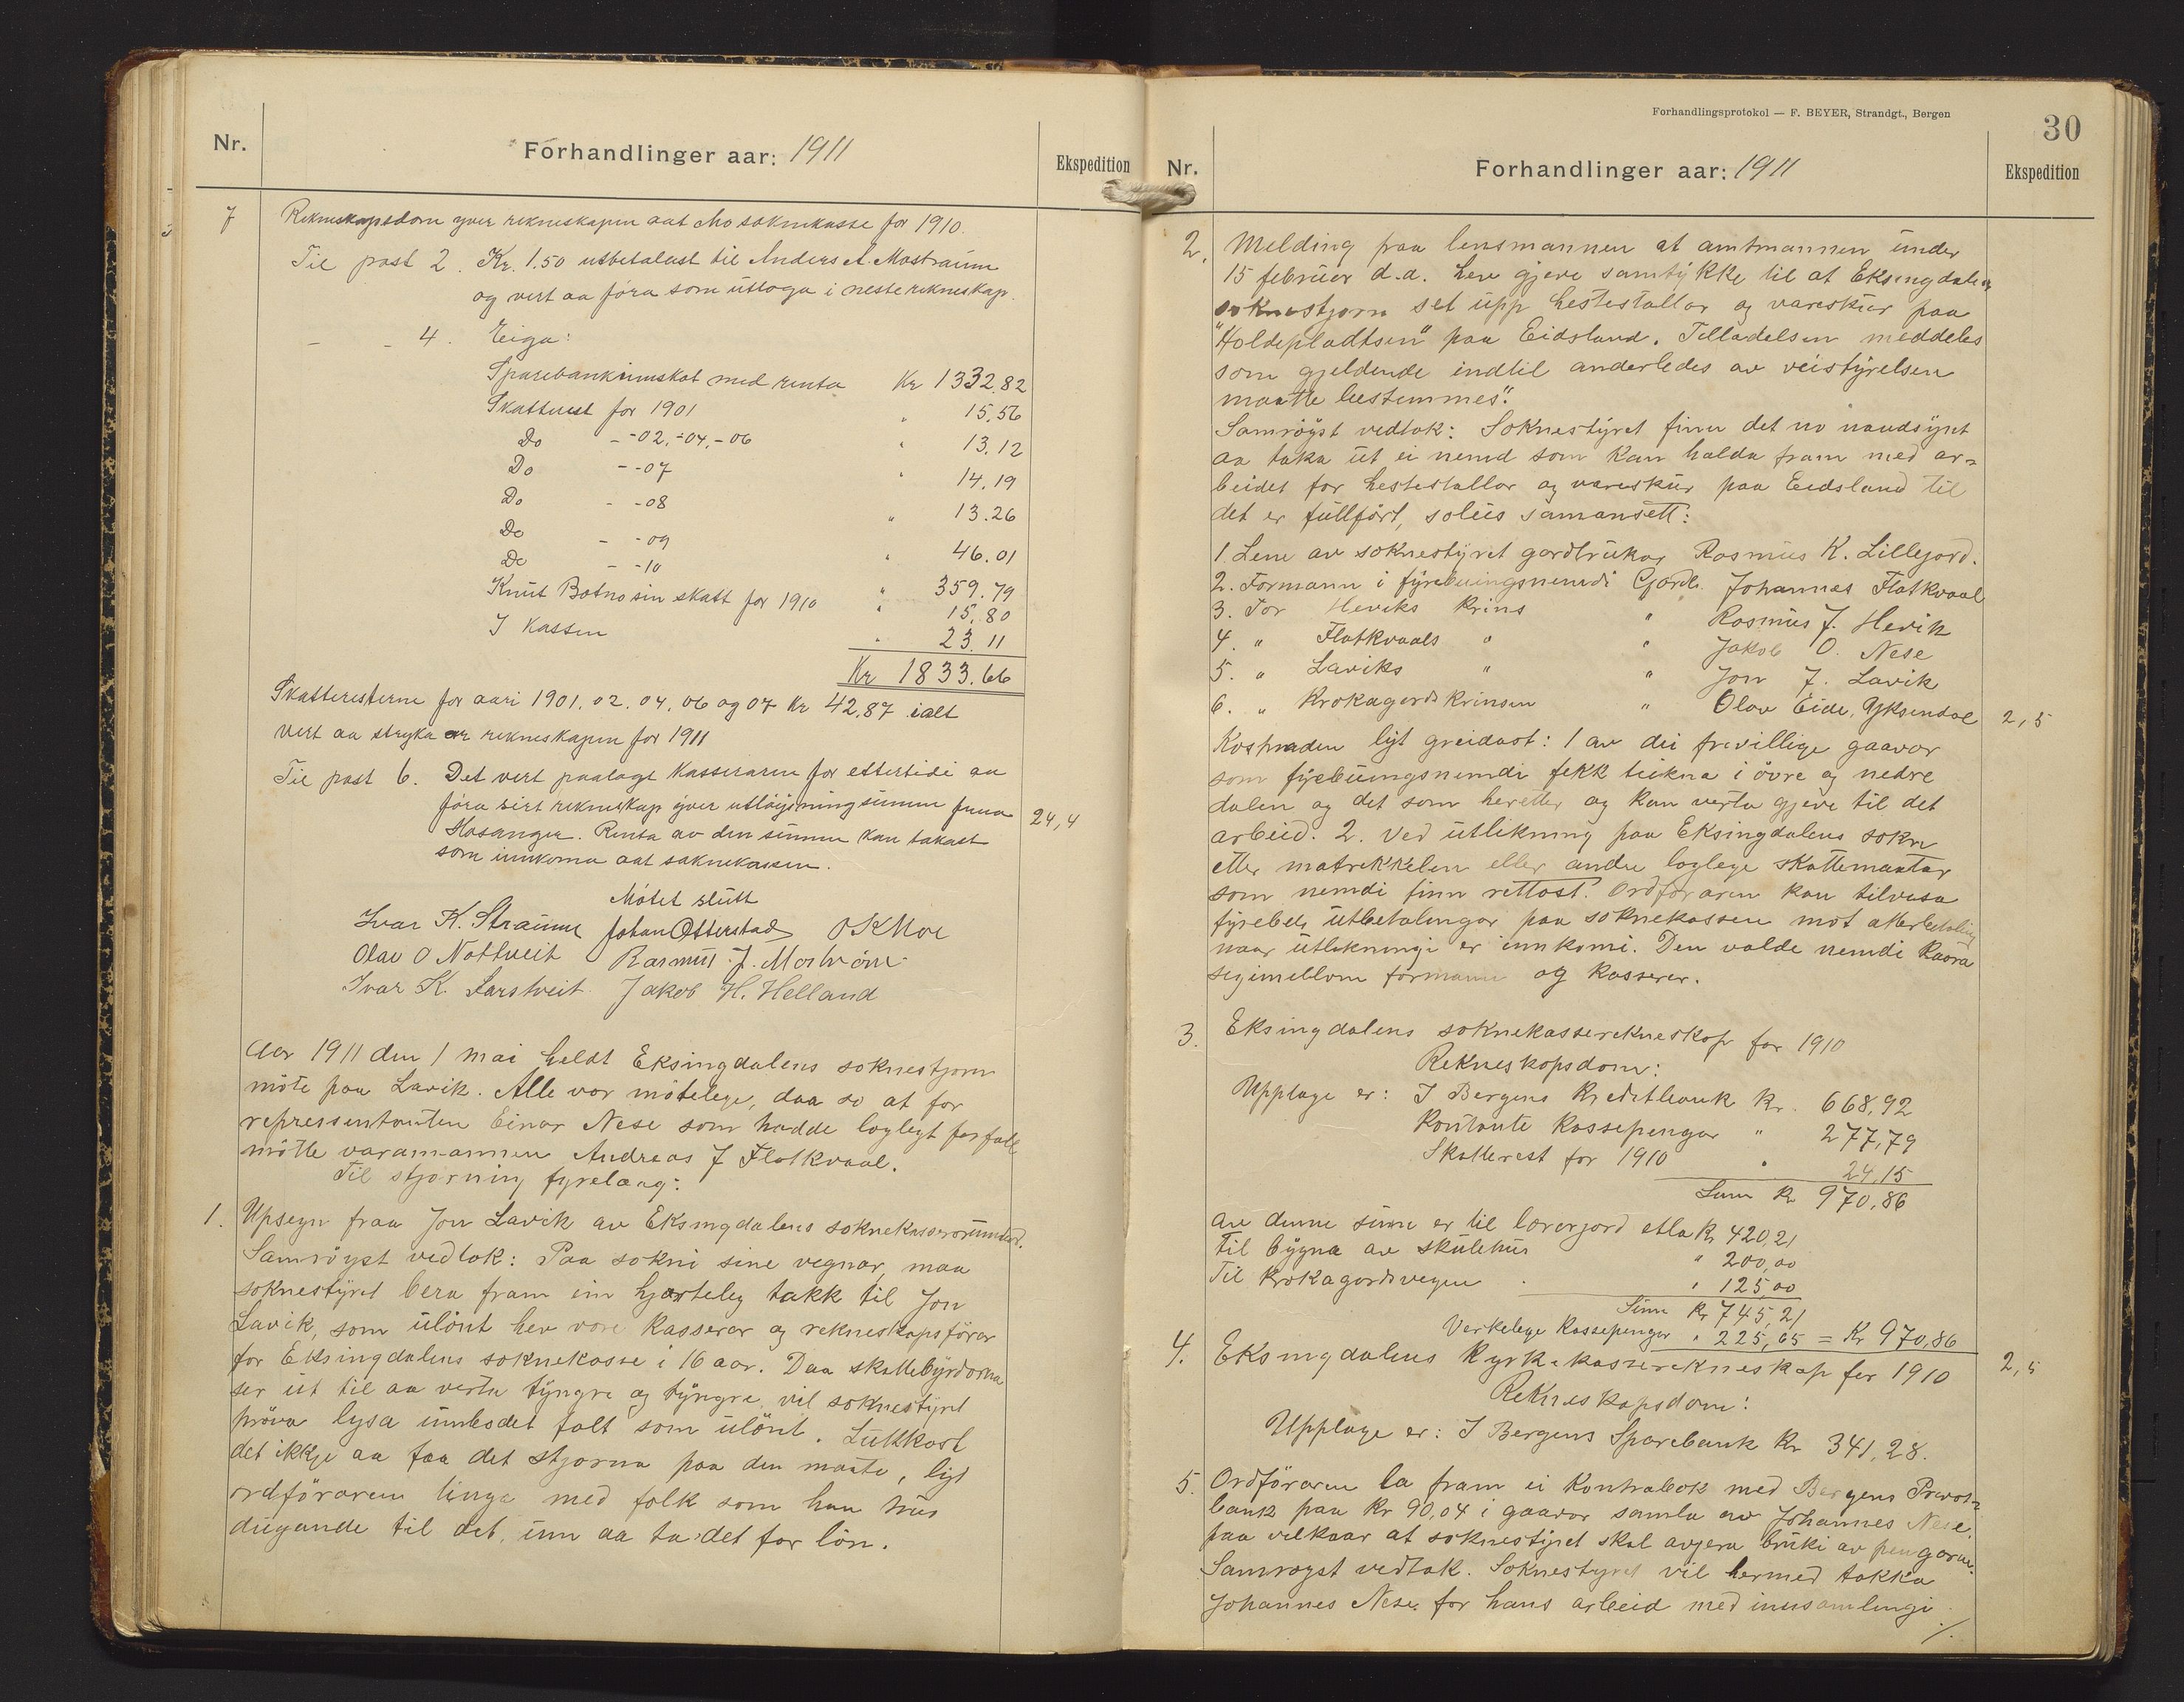 Nr.
Forhandlinger aar: 1911
Ekspedition
7 Rekneskapsdom yver rekneskapen aat Mo soknekasse for 1910.
Til post 2. Kr. 1.50 utbetalast til Anders A. Mostraum
og vert aa föra som utloga i neste rekneskap.
- - 4. Eiga:
Sparebankinnskot med renta Kr 1332.82
Skatterest for 1901 " 15.56
Do - -02, -04, -06 " 13.12
Do - -07 " 14.19
Do - -08 " 13.26
Do - -09 " 46.01
Do - -10 " 359.79
Knut Botno sin skatt for 1910 " 15.80
I Kassen " 23.11
Kr 1833.66
Skatteresterne for aari 1901. 02. 04. 06 og 07 Kr 42.87 ialt
vert aa stryka or rekneskapen for 1911
Til post 6. Det vert paalagt Kasseraren for ettertidi aa
föra sirt rekneskap yver utlöysningsummen fraa 24,4
Hosanger. Renta av den summen kan takast
som innkoma aat soknekassen.
Mötet slutt
Ivar K. Straume Johan Otterstad O K Moe
Olav O Nottveit Rasmus J. Mostraum
Ivar K. Farstveit Jakob H. Helland
Aar 1911 den 1 mai heldt Eksingdalens soknestjorn
möte paa Lavik. Alle var mötelege, daa so at for
repressentanten Einar Nese som hadde loglegt forfall
mötte varamannen Andreas J Flatkvaal.
Til stjorning fyrelaag:
1. Upsegn fraa Jon Lavik av Eksingdalens soknekasserarumbod.
Samröyst vedtok: Paa sokni sine vegnar, maa
soknestyret bera fram ein hjarteleg takk til Jon
Lavik, som ulönt hev vore Kasserar og rekneskapsförar
for Eksingdalens soknekasse i 16 aar. Daa skattebyrdorna
ser ut til aa verta tyngre og tyngre, vil soknestyret
pröva lysa umbodet falt som ulönt. Lukkast
det ikkje aa faa det stjorna paa den maate, lyt
ordföraren tinga med folk som han trur
dugande til det, um aa ta det for lön.
Forhandlingsprotokol — F. BEYER, Strandgt., Bergen
30
Nr.
Forhandlinger aar: 1911
Ekspedition
2. Melding fraa lensmannen at amtmannen under
15 februar d.a. hev gjeve samtykke til at Eksingdalen
soknestjorn set upp hestestallar og vareskur paa
"Holdepladtsen" paa Eidsland. Tilladelsen meddeles
som gjeldende indtil anderledes av veistyrelsen
maatte bestemmes".
Samröyst vedtok: Soknestyret finn det no naudsynt
aa taka ut ei nemd som kan halda fram med ar=
beidet for hestestallar og vareskur paa Eidsland til
det er fullfört, soleis samansett:
1. Lem av soknestyret gardbrukar Rasmus K. Lillejord.
2. Formann i fyrebuingsnemdi Gardb. Johannes Flatkvaal
3. For Heviks Krins " Rasmus J. Hevik
4. " Flatkvaals " " Jakob O. Nese
5. " Laviks " " Jon J. Lavik
6. " Krokagards Krinsen " Olav Eide, Yksendal 2,5
Kostnaden lyt greidast: 1 av dei frivillige gaavor
som fyrebuingsnemdi fekk teikna i övre og nedre
dalen og det som heretter og kan verta gjeve til det
arbeid. 2. Ved utlikning paa Eksingdalens sokn
etter matrikkelen eller andre loglege skattemaatar
som nemdi finn rettast. Ordföraren kan tilvisa
fyrebels utbetalingar paa soknekassen mot atterbetaling
naar utlikningi er innkomi. Den valde nemdi kaara
segimellom formann og kasserer.
3. Eksingdalens soknekasserekneskap for 1910
Rekneskapsdom:
Upplage er: I Bergens Kreditbank Kr. 668,92
Kontante Kassepengar " 277,79
Skatterest for 1910 " 24,15
Sum Kr 970,86
av denne sum er til lærarjord etla Kr 420,21
Til bygna av skulehus " 200,00
Til Krokagardsvegen " 125,00
Sum Kr 745,21
Verkelege Kassepengar " 225,65 = Kr 970,86
4. Eksingdalens Kyrkekasserekneskap for 1910 2,5
Rekneskapsdom:
Upplage er: I Bergens Sparebank Kr 341,28.
5. Ordföraren la fram ei Kontrabok med Bergens Privat=
bank paa Kr 90,04 i gaavor samla av Johannes Nese.
paa vilkaar at soknestyret skal avgjera bruki av pengarne.
Samröyst vedtak. Soknestyret vil hermed takka
Johannes Nese for hans arbeid med innsamlingi
./.